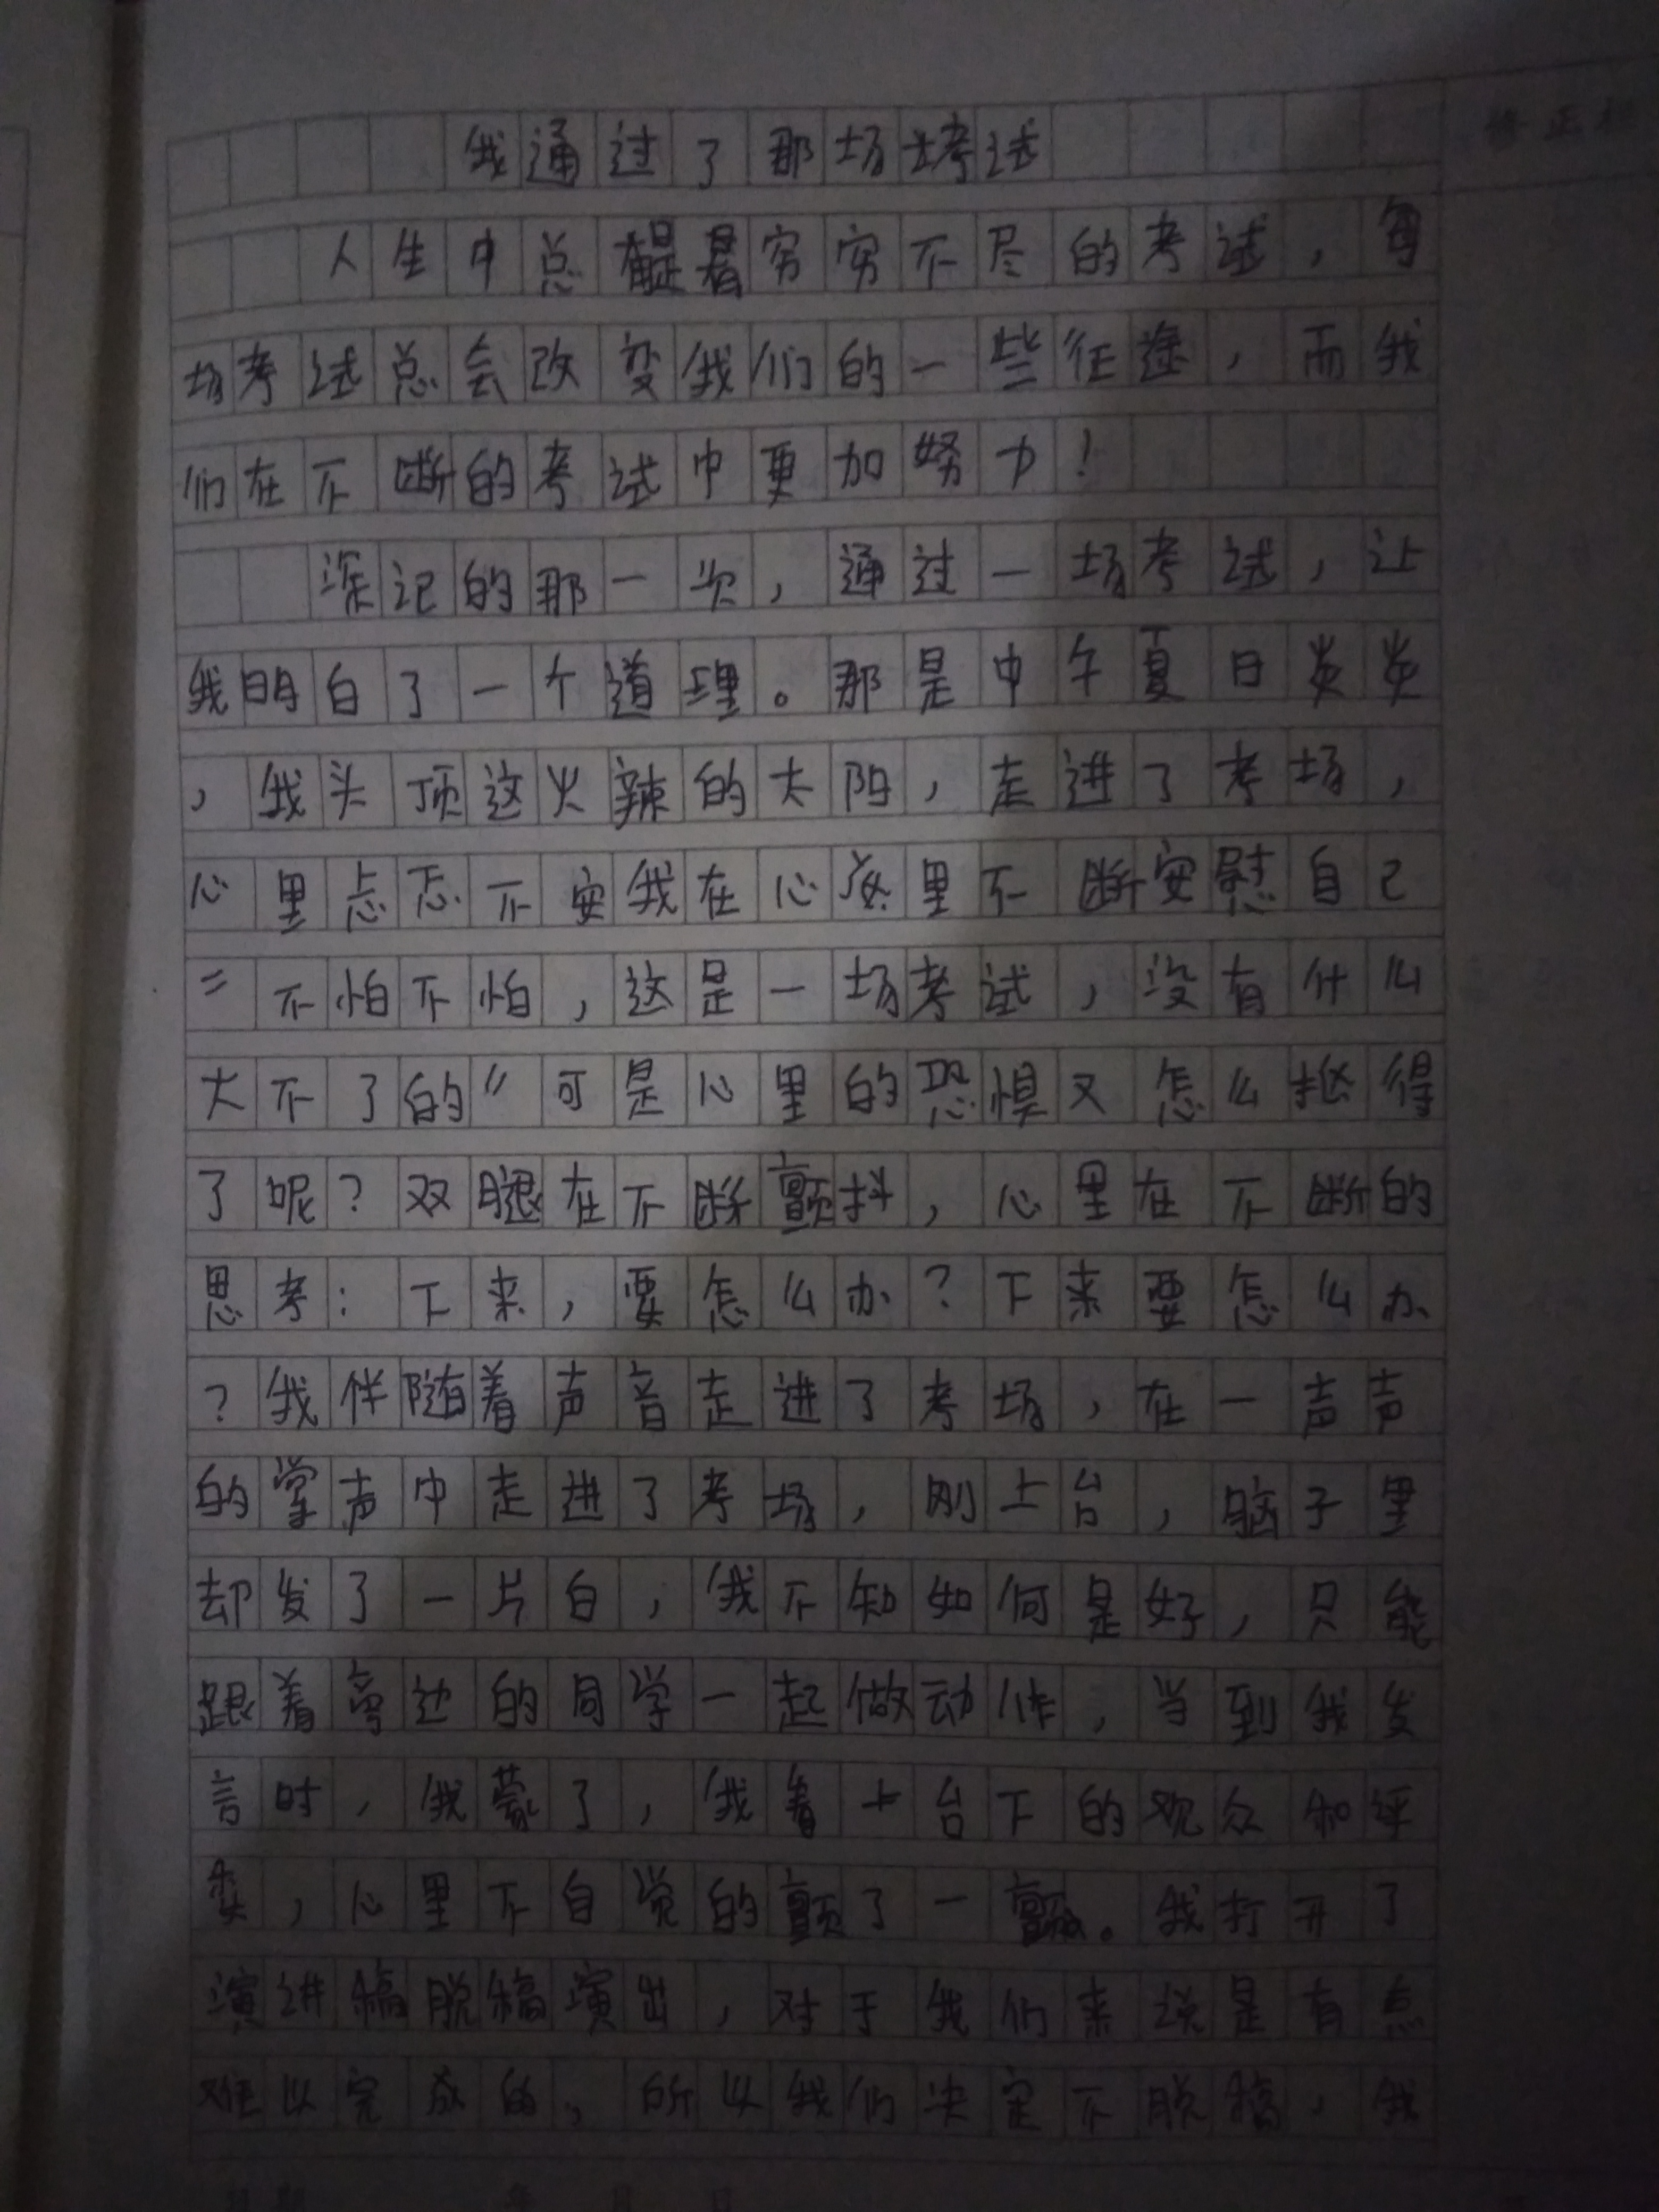 我通过了那场考试
人生中总有着穷穷不尽的考试，每
场考试总会改变我们的一些征途，而我
们在不断的考试中更加努力！
深记的那一次，通过一场考试，让
我明白了一个道理。那是中午夏日炎炎
，我头顶这火辣的太阳，走进了考场，
心里忐忑不安我在心底里不断安慰自己
“不怕不怕，这是一场考试，没有什么
大不了的”可是心里的恐惧又怎么抠得
了呢？双腿在不断颤抖，心里在不断的
思考：下来，要怎么办？下来要怎么办
？我伴随着声音走进了考场，在一声声
的掌声中走进了考场，刚上台，脑子里
却发了一片白，我不知如何是好，只能
跟着旁边的同学一起做动作，当到我发
言时，我蒙了，我看上台下的观众和评
委，心里不自觉的颤了一颤。我打开了
演讲稿脱稿演出，对于我们来说是有点
难以完成的，所以我们决定不脱稿，我